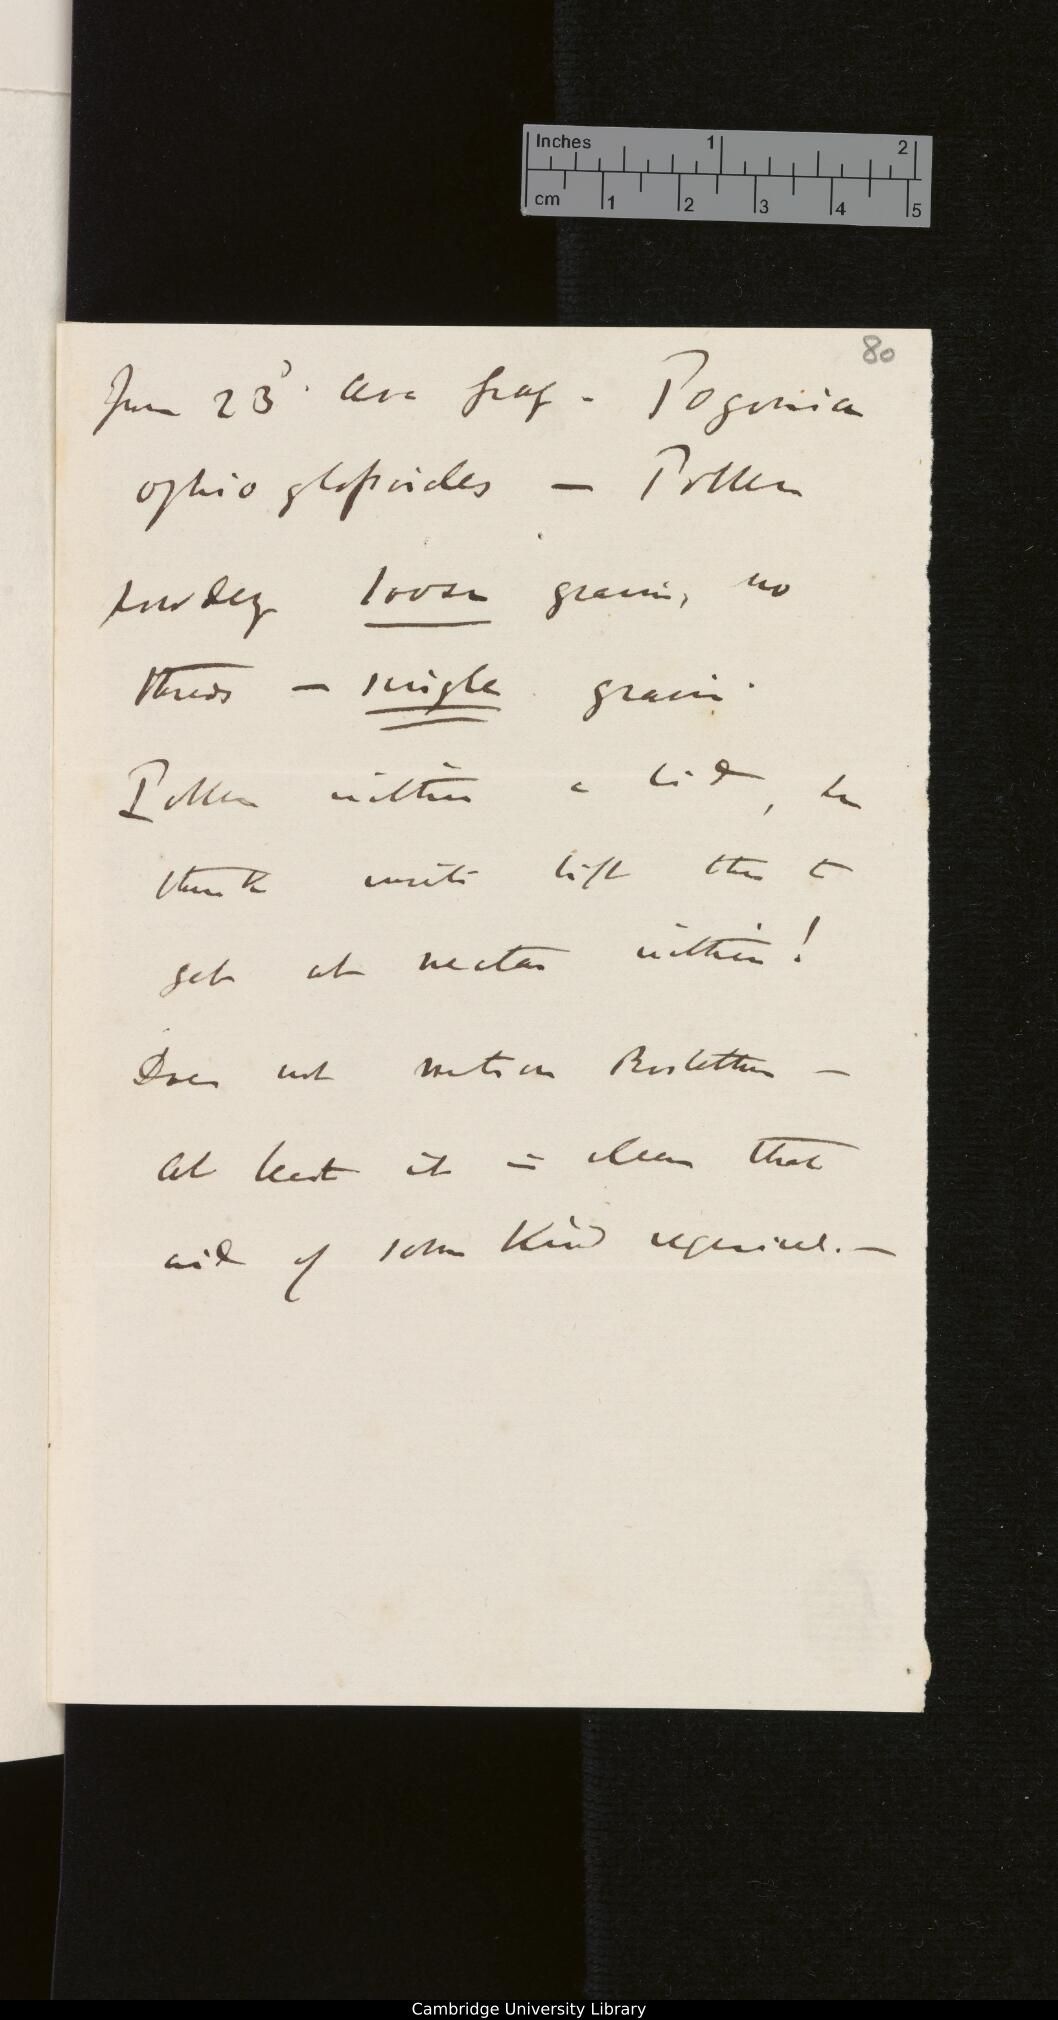 Inches 1 2
cm 1 2 3 4 5
80
June 23d. Asa Gray - Pogonia
ophioglossoides — Pollen
powdery loose grains, no
threads — single grain.
Pollen within a lid, he
thinks insects lift this to
get at nectar within!
Does not mention Rostellum —
At least it is clear that
aid of some kind required. —
Cambridge University Library